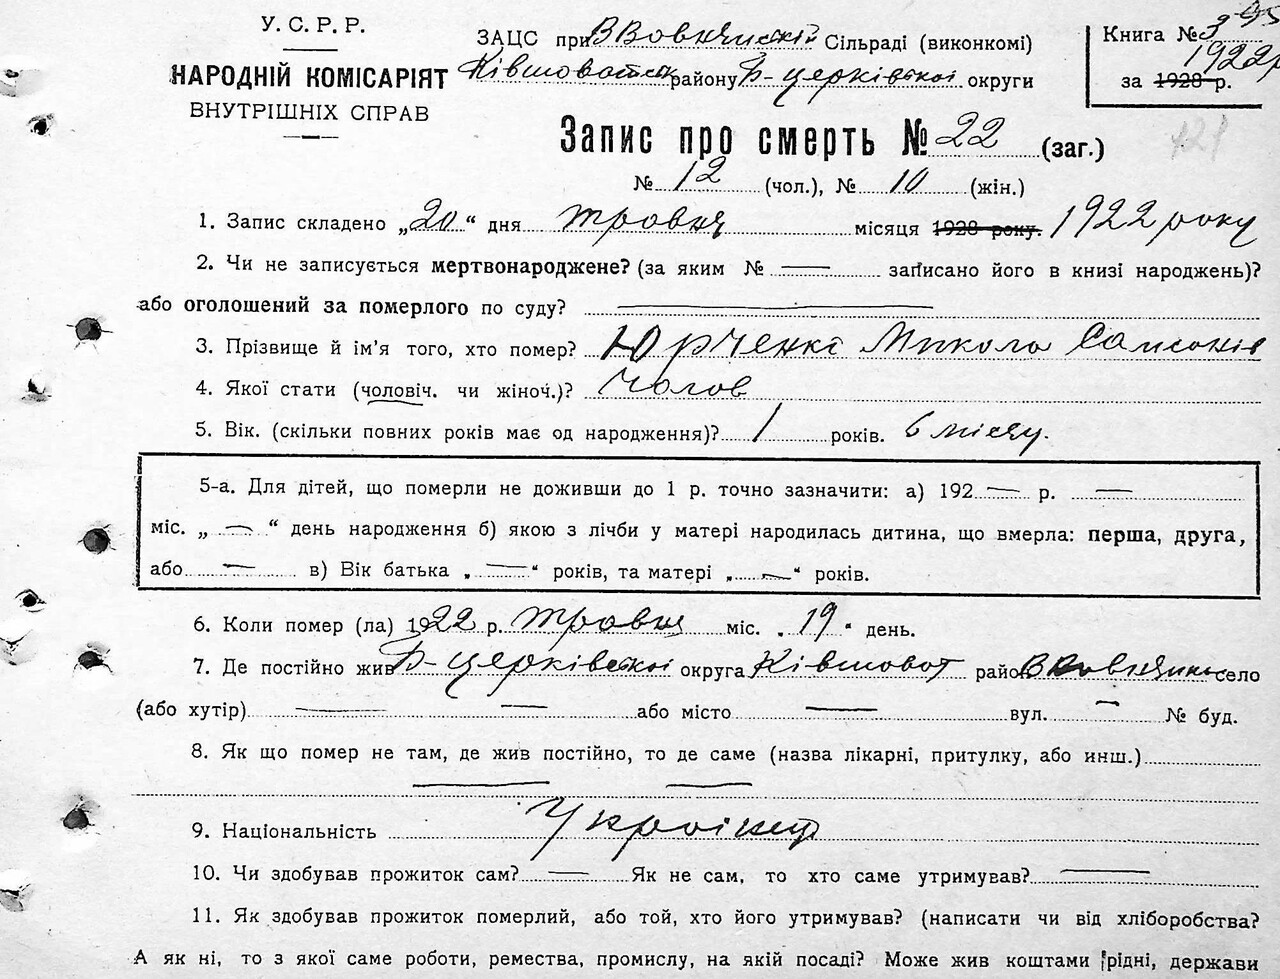 У. С. Р. Р.
НАРОДНІЙ КОМІСАРІЯТ
ВНУТРІШНІХ СПРАВ
ЗАЦС при ВВовнянскій Сільраді (виконкомі)
району Б-церківської округи
Книга № 3
1922 р
за 1928 р.
Запис про смерть № 22 (заг.)
121
№ 12 (чол.), № 10 (жін.)
1. Запис складено „20“ дня травня місяця 1928 року. 1922 року
2. Чи не записується мертвонароджене? (за яким № — записано його в книзі народжень)?
або оголошений за померлого по суду? —
3. Прізвище й ім'я того, хто помер? Юрченкі Микола Самсонів
4. Якої стати (чоловіч. чи жіноч.)? Чолов
5. Вік. (скільки повних років має од народження)? 1 років. 6 місяц.
5-а. Для дітей, що померли не доживши до 1 р. точно зазначити: а) 192 — р. —
міс. „ — “ день народження б) якою з лічби у матері народилась дитина, що вмерла: перша, друга,
або — в) Вік батька „ — “ років, та матері „ — “ років.
6. Коли помер (ла) 1922 р. травня міс. „19“ день.
7. Де постійно жив Б-церківської округа Ківшоват район село
(або хутір) — — або місто — вул. — № буд.
8. Як що помер не там, де жив постійно, то де саме (назва лікарні, притулку, або инш.)
— —
9. Національність Українец
10. Чи здобував прожиток сам? — Як не сам, то хто саме утримував? —
11. Як здобував прожиток померлий, або той, хто його утримував? (написати чи від хліборобства?
А як ні, то з якої саме роботи, ремества, промислу, на якій посаді? Може жив коштами рідні, держави